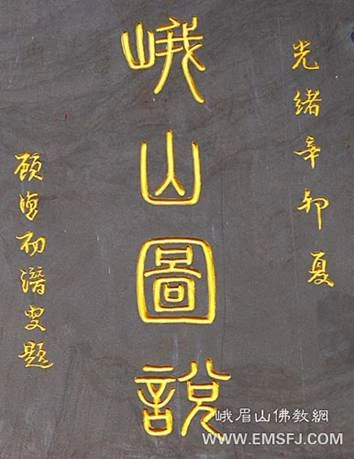 光緒辛卯夏
峨山圖說
顧復初潛叟題
峨眉山佛教網
WWW.EMSFJ.COM